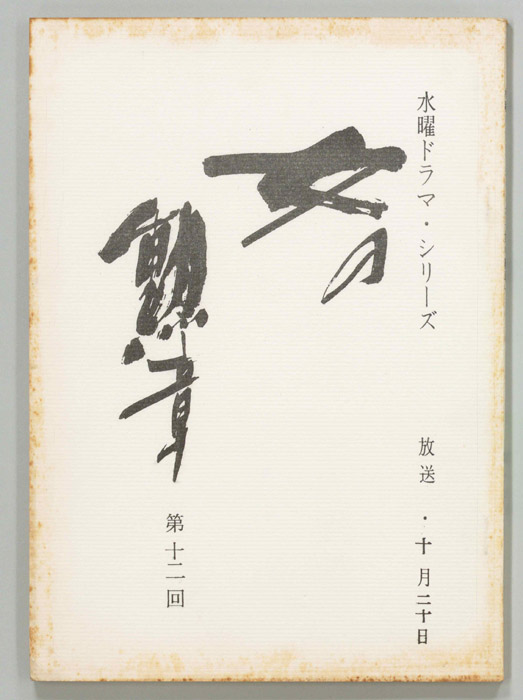 水曜ドラマ・シリーズ
放送・十月二十日
女の
勲章
第十二回